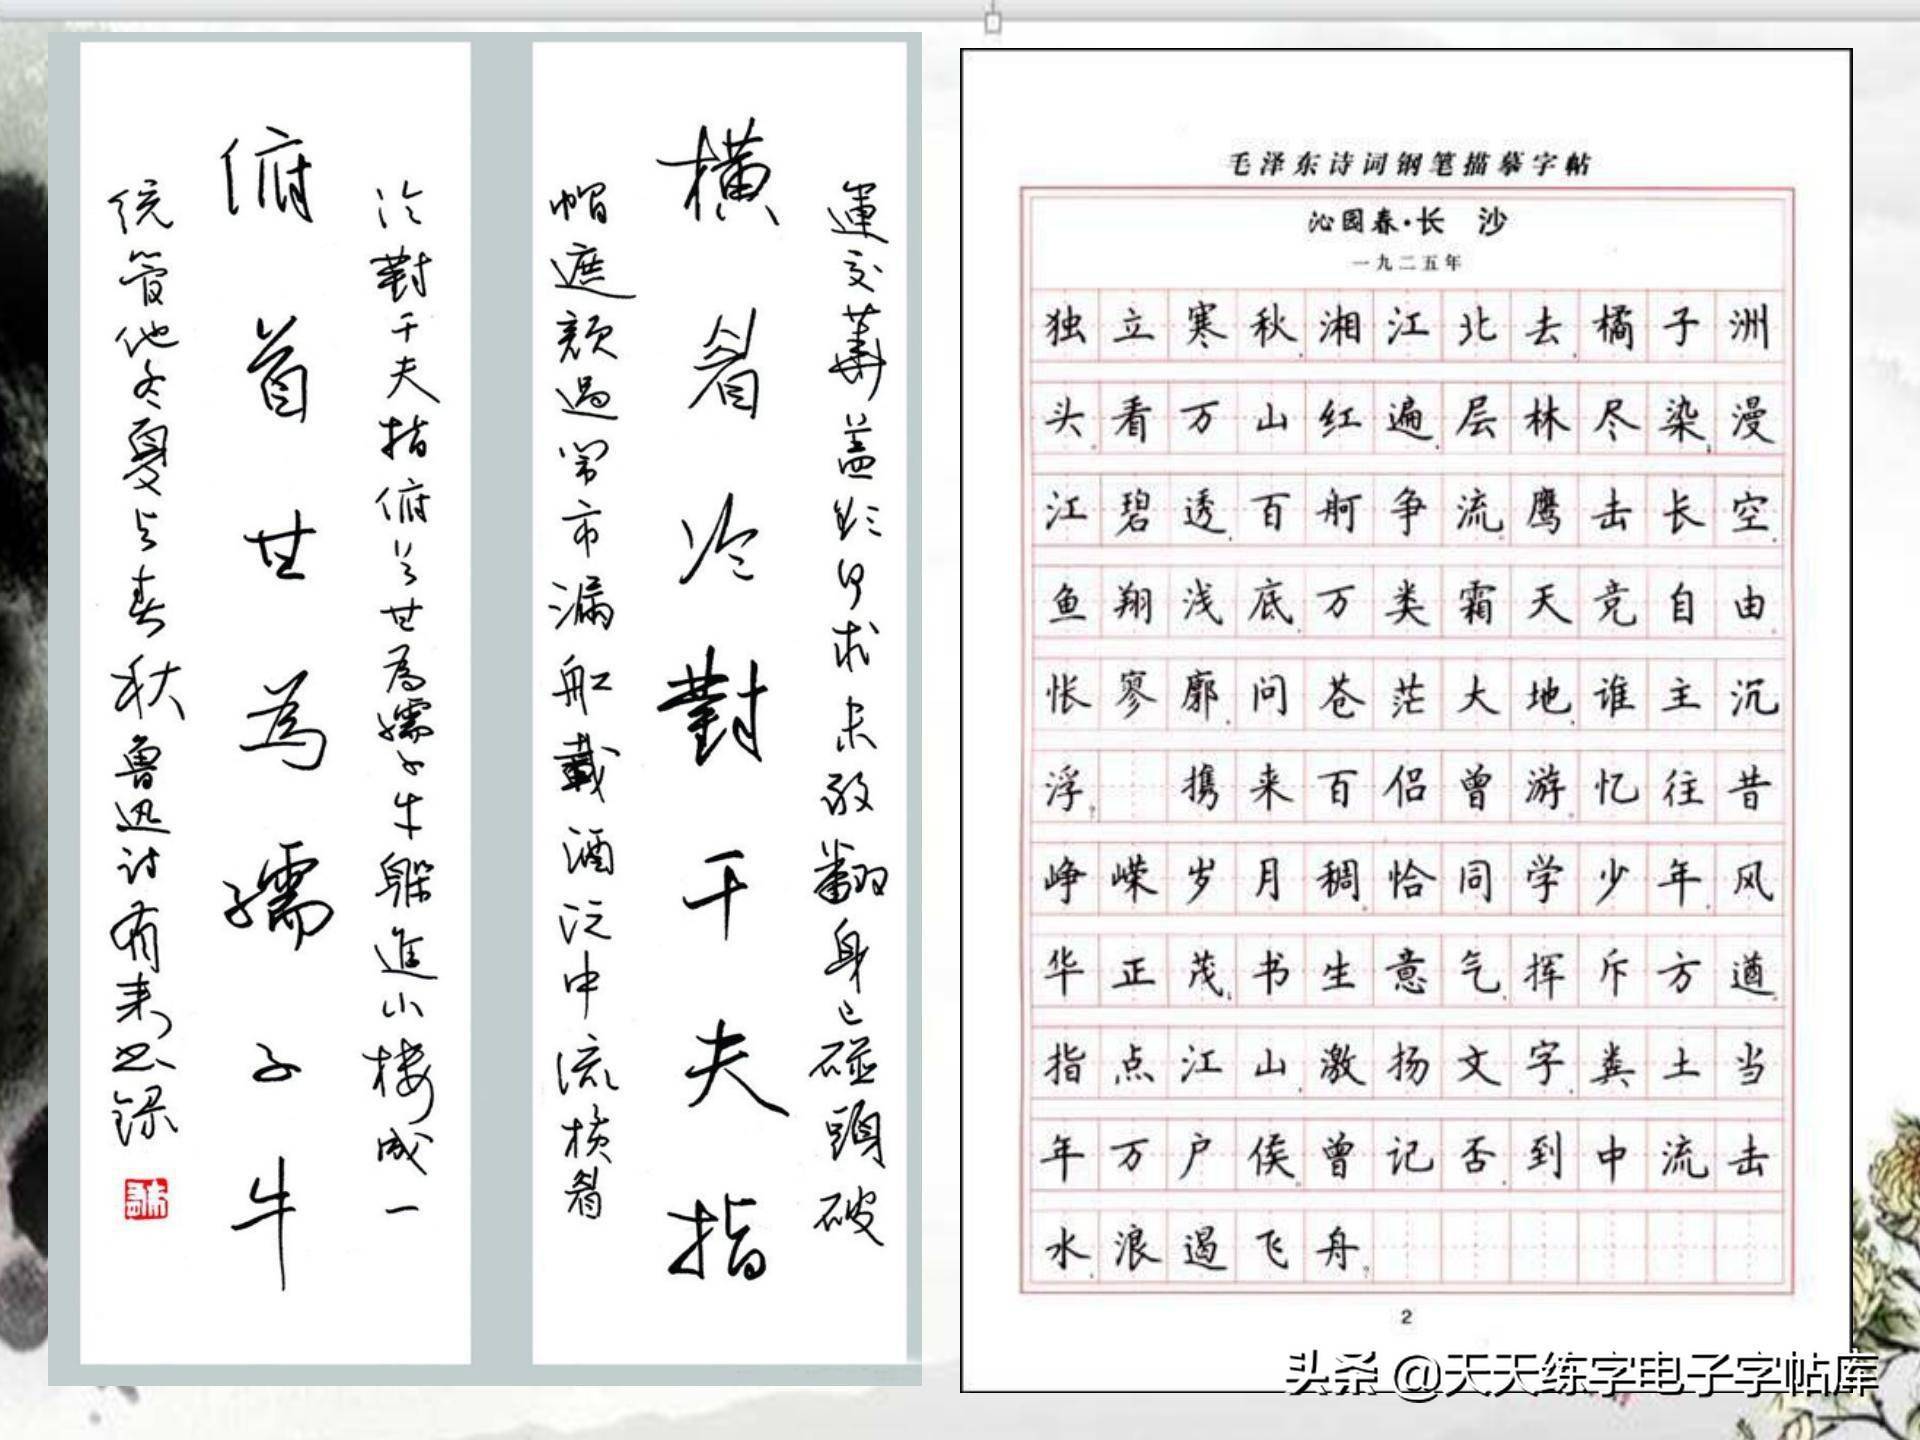 運交華蓋欲何求未敢翻身已碰頭破
橫眉冷對千夫指
帽遮顏過鬧市漏舩載酒泛中流橫眉
冷對千夫指俯首甘為孺子牛躲進小樓成一
俯首甘為孺子牛
統管他冬夏与春秋魯迅诗有未书録
毛泽东诗词钢笔描摹字帖
沁园春·长 沙
一九二五年
独立寒秋，湘江北去，橘子洲
头。看万山红遍，层林尽染；漫
江碧透，百舸争流。鹰击长空，
鱼翔浅底，万类霜天竞自由。
怅寥廓，问苍茫大地，谁主沉
浮？ 携来百侣曾游，忆往昔
峥嵘岁月稠。恰同学少年，风
华正茂；书生意气，挥斥方遒。
指点江山，激扬文字，粪土当
年万户侯。曾记否，到中流击
水，浪遏飞舟？
2
头条 @天天练字电子字帖库